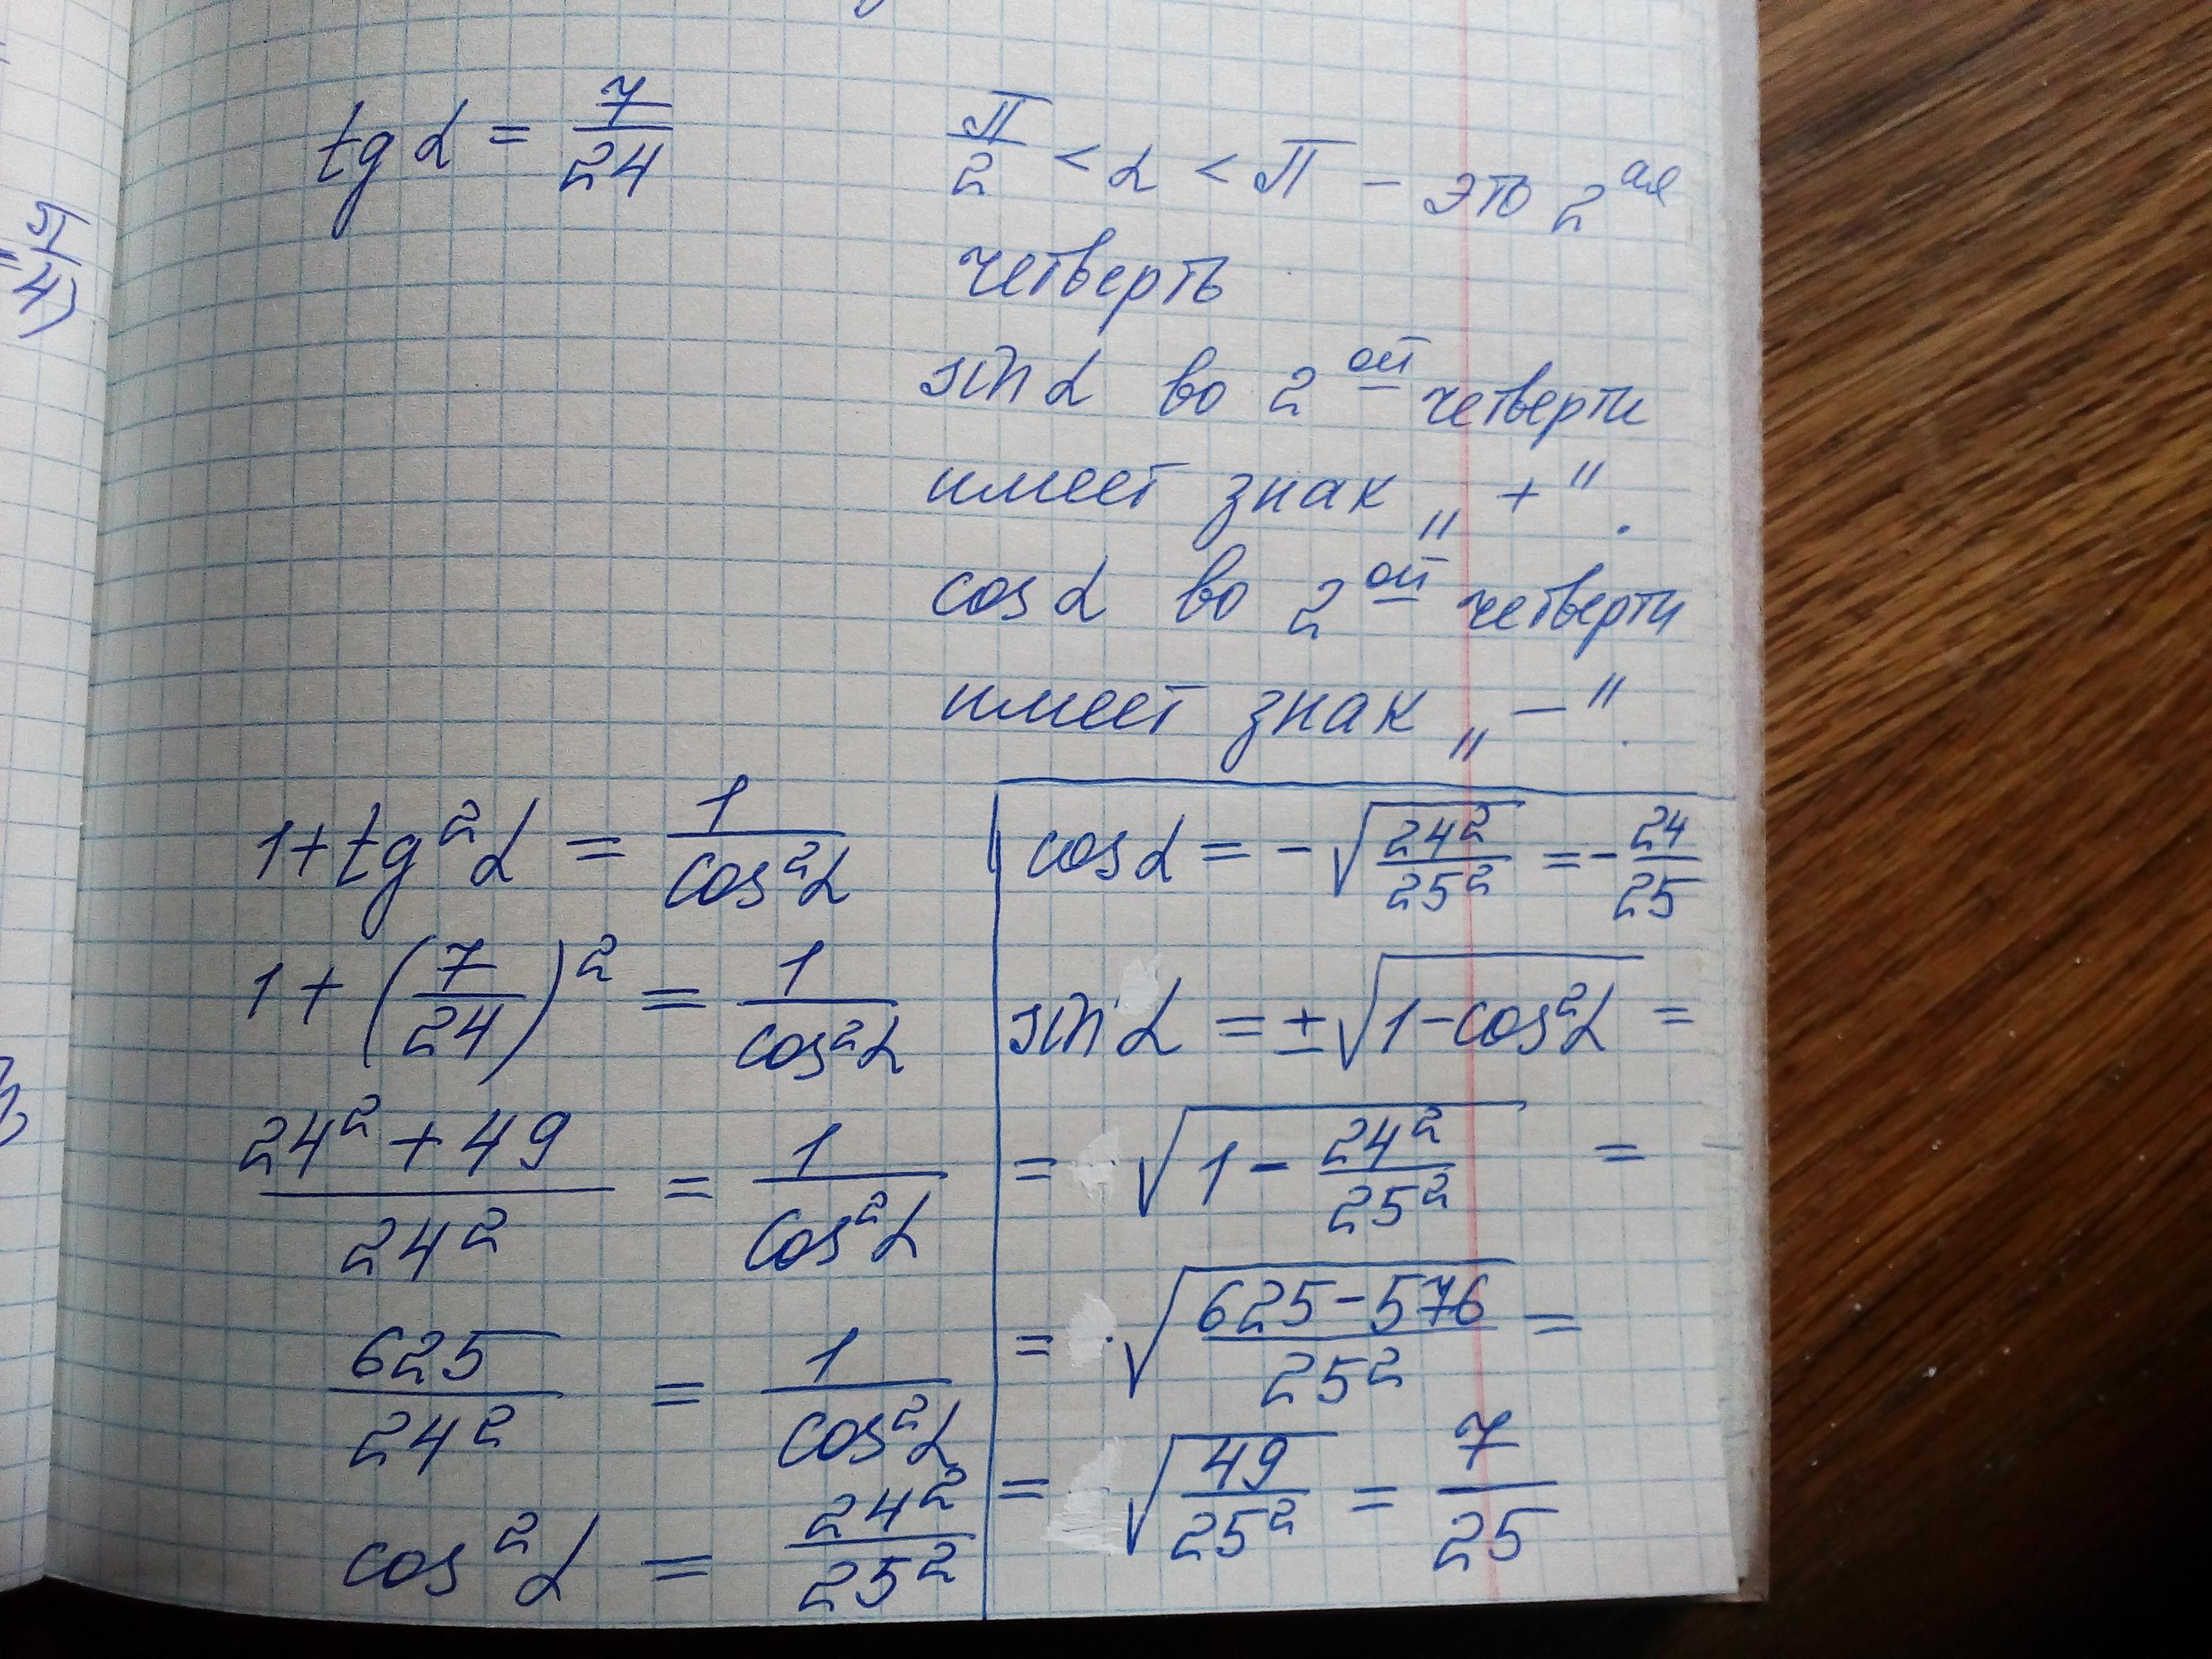 tg α = 7/24
π/2 < α < π – это 2ая
четверть
sin α во 2ой четверти
имеет знак „+".
cos α во 2ой четверти
имеет знак „–".
1+tg²α = 1/cos²α
1+(7/24)² = 1/cos²α
(24²+49)/24² = 1/cos²α
625/24² = 1/cos²α
cos²α = 24²/25²
cos α = -√(24²/25²) = -24/25
sin α = ±√(1-cos²α) =
= √(1-24²/25²) =
= √((625-576)/25²) =
= √(49/25²) = 7/25
π/4)